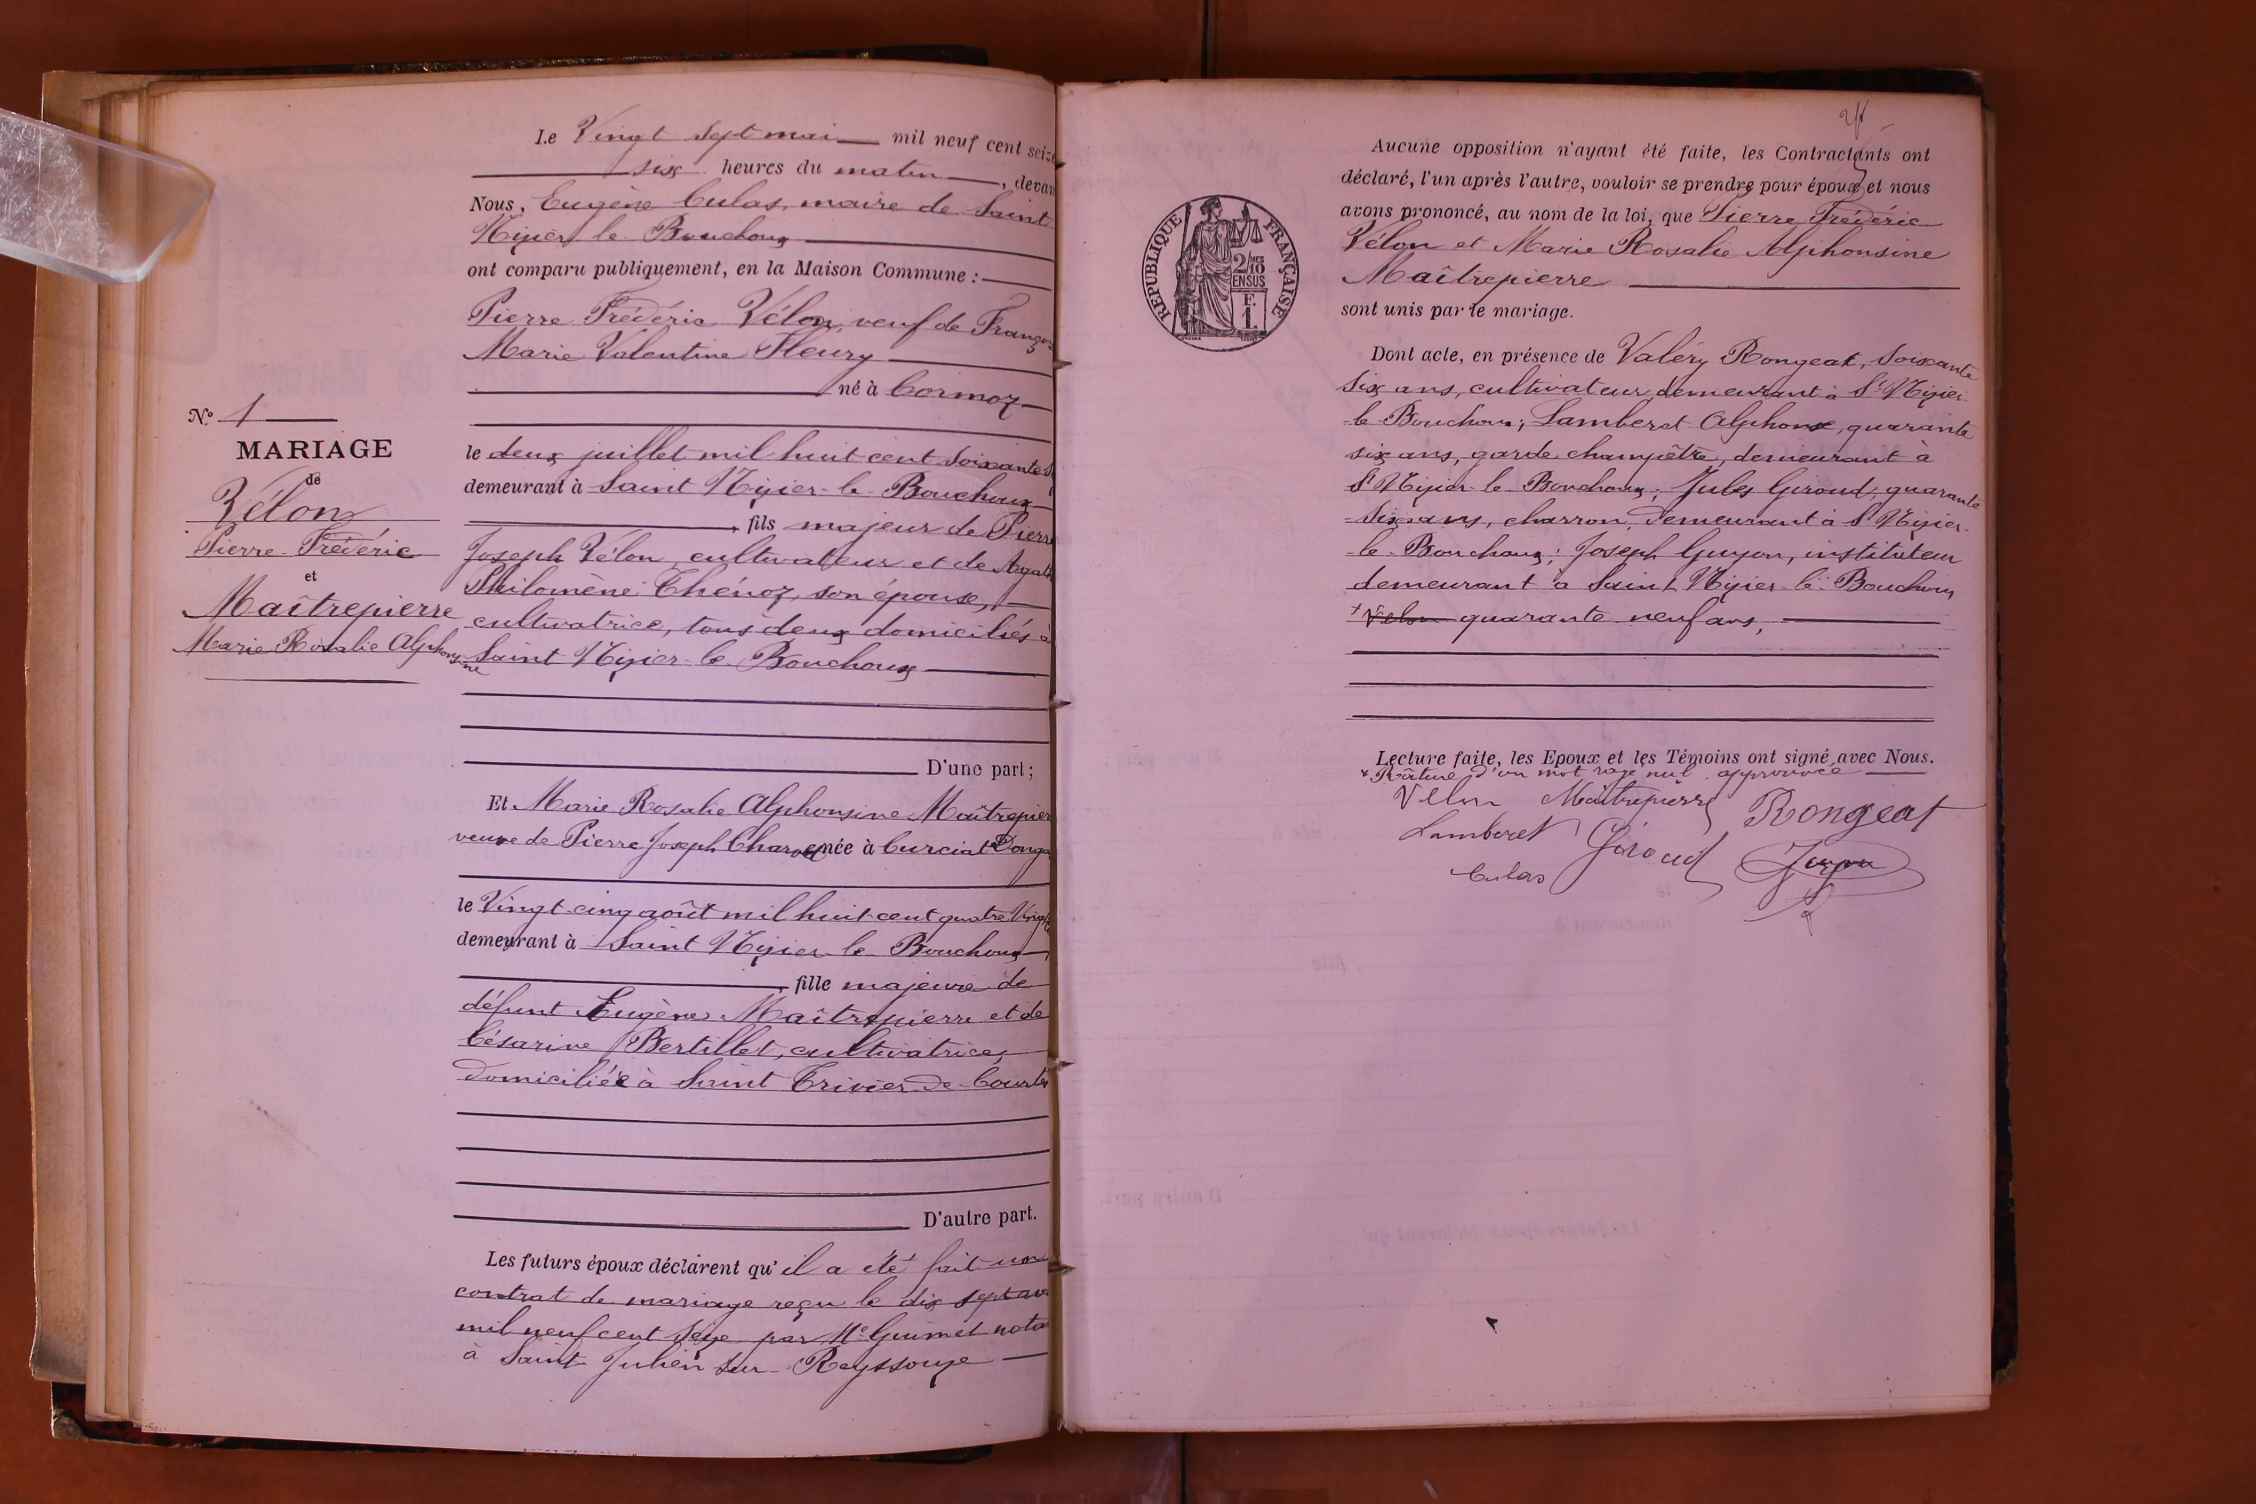 Le Vingt Sept mai mil neuf cent seize
six heures du matin, devan
Nous, Eugène Culas, maire de Saint
Nizier le Bouchoux
ont comparu publiquement, en la Maison Commune :
Pierre Frédéric Vélon, veuf de Franço
Marie Valentine Fleury
né à Cormoz
N° 1
MARIAGE
de
Vélon
Pierre Frédéric
et
Maîtrepierre
Marie Rosalie Alphonsine
le deux juillet mil huit cent soixante
demeurant à Saint Nizier le Bouchoux
, fils majeur de Pierre
Joseph Vélon, cultivateur et de Agath
Philomène Thénoz, son épouse,
cultivatrice, tous deux domiciliés à
Saint Nizier le Bouchoux
D'une part ;
Et Marie Rosalie Alphonsine Maîtrepier
veuve de Pierre Joseph née à Curciat Donga
le Vingt cinq août mil huit cent quatre Vingt
demeurant à Saint Nizier le Bouchoux,
, fille majeure de
défunt Eugène Maîtrepierre et de
Césarine Bertillet, cultivatrice,
domiciliée à Saint Trivier de Courtes
D'autre part.
Les futurs époux déclarent qu'il a été fait un
contrat de mariage reçu le dix sept av
mil neuf cent seize par Me Guimet nota
à Saint Julien sur Reyssouze
Aucune opposition n'ayant été faite, les Contractants ont
déclaré, l'un après l'autre, vouloir se prendre pour époux et nous
avons prononcé, au nom de la loi, que Pierre Frédéric
Vélon et Marie Rosalie Alphonsine
Maîtrepierre
sont unis par le mariage.
RÉPUBLIQUE FRANÇAISE
2/10 MES
EN SUS
F.
1.
Dont acte, en présence de Valéry Rongeat, soixante
six ans, cultivateur demeurant à St Nizier
le Bouchoux ; Lamberet Alphonse, quarante
six ans, garde champêtre, demeurant à
St Nizier le Bouchoux ; Jules Giroud, quarante
six ans, charron, demeurant à St Nizier
le Bouchoux ; Joseph Guyon, instituteur
demeurant à Saint Nizier le Bouchoux
+ Vélon quarante neuf ans,
Lecture faite, les Epoux et les Témoins ont signé avec Nous.
+ Rature d'un mot rayé nul approuvée
Velon Maîtrepierre Rongeat
Lamberet Giroud Guyon
Culas